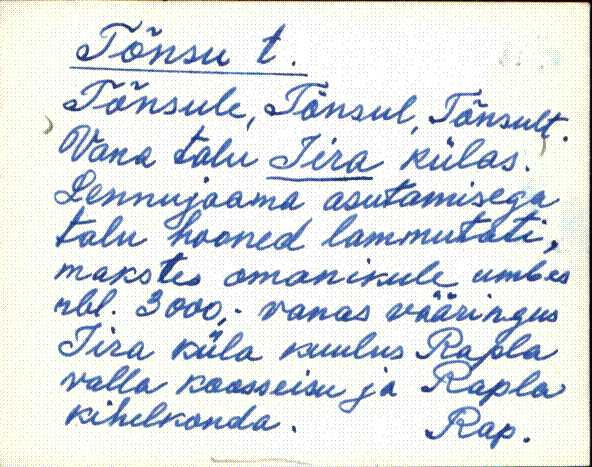 Tõnsu t.
Tõnsule, Tõnsul, Tõnsult.
Vana talu Iira külas.
Lennujaama asutamisega
talu hooned lammutati,
makstes omanikule umbes
rbl. 3000,- vanas vääringus
Iira küla kuulus Rapla
valla koosseisu ja Rapla
kihelkonda. Rap.